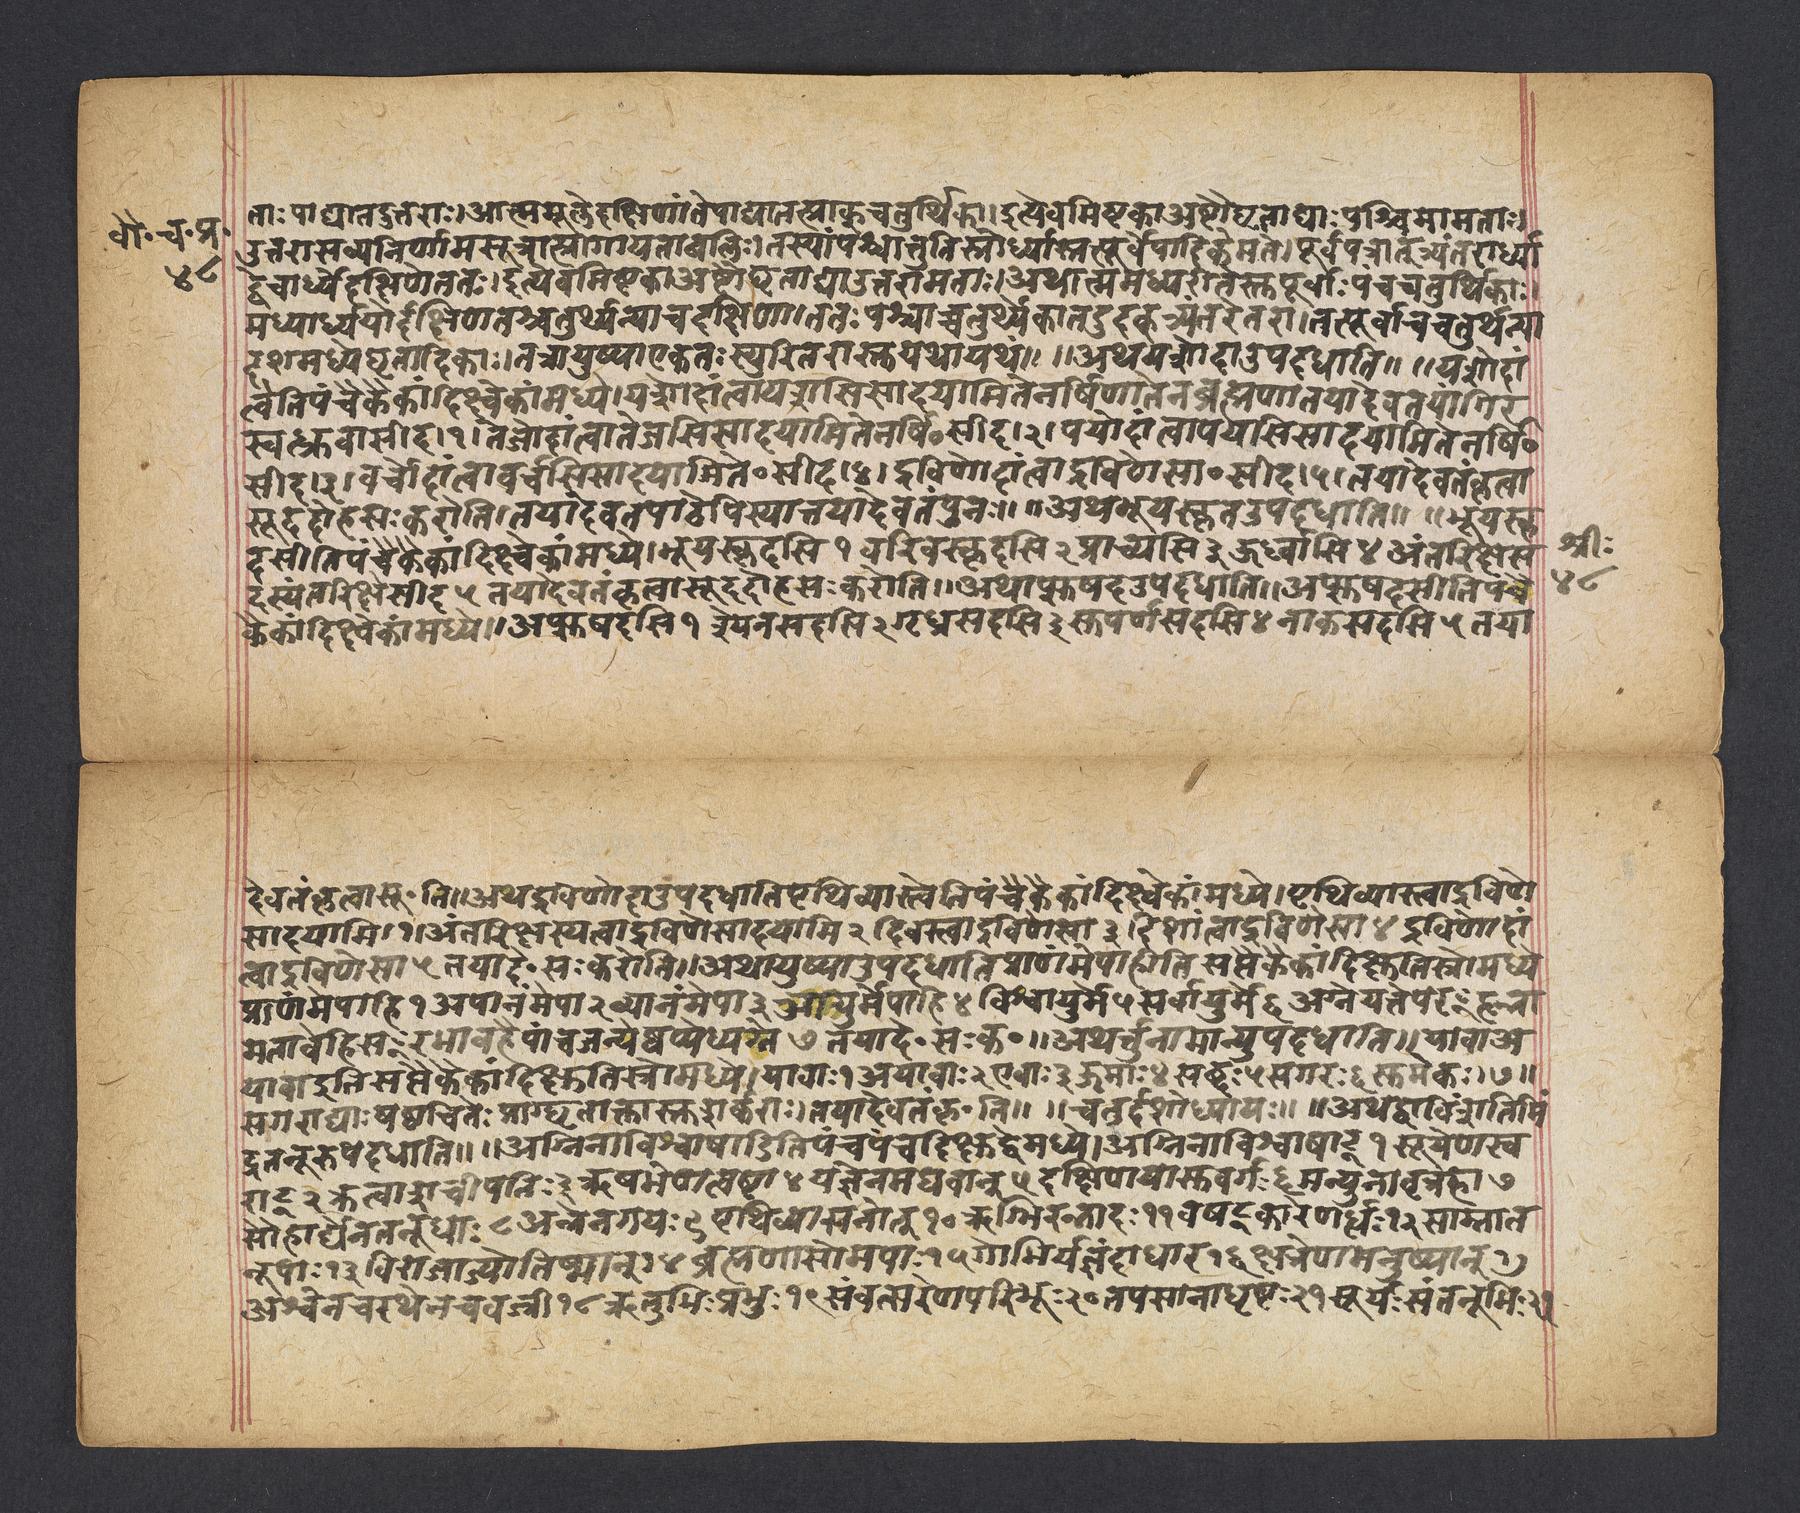 बौ॰ च॰ प्र॰
४८
ताः पाद्यातदुत्तराः।आत्ममूलेदक्षिणांतेपाद्यातस्नाकुचतुर्थिका।इत्येवमिष्टकाअष्टौघृताद्याःपश्चिमामताः।
उत्तरासव्यनिर्णामसूत्रात्प्रागायतावलिः।तस्यांपश्चात्तुतिस्रोर्ध्यास्तत्पूर्वेपादिकेमते।पूर्वपत्रात्र्यंतरार्ध्या
द्वेचार्ध्येदक्षिणेततः।इत्येवमिष्टकाअष्टौघृताद्याउत्तरामताः।अथात्ममध्यरीतिस्तपूर्वाःपंचचतुर्थिकाः।
मध्यार्ध्ययोर्दक्षिणतश्चतुर्थ्यन्याचदक्षिणा।ततःपश्चाच्चतुर्थ्येकातदुदक्त्र्यंतरेतरा।तत्पूर्वाचचतुर्थ्यन्या
दशमध्येघृतादिकाः।तत्रायुष्याएकतःस्युरितरास्तयथायथं॥ ॥अथयशोदाउपदधाति॥ ॥यशोदां
त्वेतिपंचैकैकांदिक्ष्वेकांमध्ये।यशोदांत्वायशसिसादयामितेनर्षिणातेनब्रह्मणातयादेवतयांगिर
स्वत्ध्रुवासीद।१।तेजोदांत्वातेजसिसादयामितेनर्षि॰सीद।२।पयोदांत्वापयसिसादयामितेनर्षि॰
सीद।३।वर्चोदांत्वावर्चसिसादयामिते॰सीद।४।द्रविणोदांत्वाद्रविणेसा॰सीद।५।तयादेवतंकृत्वा
सूददोहसःकरोति।तयादेवतपाठेपिस्यात्तयादेवतंपुनः॥ ॥अथभूयस्कृतउपदधाति॥ ॥भूयस्कृ
दसीतिपंचैकैकांदिक्ष्वेकांमध्ये।भूयस्कृदसि १ वरिवस्कृदसि २ प्राच्यसि ३ ऊर्ध्वासि ४ अंतरिक्षस
दस्यंतरिक्षेसीद ५ तयादेवतंकृत्वासूददोहसःकरोति॥अथाप्सुषदउपदधाति॥अप्सुषदसीतिपंचै
कैकांदिक्ष्वेकांमध्ये॥अप्सुषदसि १ श्येनसदसि २ गृध्रसदसि ३ सुपर्णसदसि ४ नाकसदसि ५ तया
श्रीः
४८
देवतंकृत्वासू॰ति॥अथद्रविणोदाउपदधातिपृथिव्यास्त्वेतिपंचैकैकांदिक्ष्वेकांमध्ये।पृथिव्यास्त्वाद्रविणे
सादयामि।१।अंतरिक्षस्यत्वाद्रविणेसादयामि २ दिवस्त्वाद्रविणेसा ३।दिशांत्वाद्रविणेसा ४ द्रविणोदां
त्वाद्रविणेसा ५ तयादे॰सःकरोति॥अथायुष्याउपदधातिप्राणंमेपाहीतिसप्तैकैकांदिक्षुतिस्रोमध्ये
प्राणंमेपाहि १ अपानंमेपा २ व्यानंमेपा ३ आयुर्मेपाहि ४ विश्वायुर्मे ५ सर्वायुर्मे ६ अग्नेयत्तेपरꣳहृन्ना
मतावेहिसꣳरभावहैपांचजन्येष्वप्येध्यग्ने ७ तयादे॰सःक॰॥अथर्तुनामान्युपदधाति॥यावाअ
यावाइतिसप्तैकैकांदिक्षुतिस्रोमध्ये।यावाः १ अयावाः २ एवाः ३ ऊमाः ४ सब्दः ५ सगरः ६ सुमेकः।७॥
सगराद्याःषष्ठचितेःप्राग्घृताक्तास्तशर्कराः।तयादेवतंकृ॰ति॥ ॥चतुर्दशोध्यायः॥ ॥अथद्वाविंशतिमिं
द्रतनूरुपदधाति॥ ॥अग्निनाविश्वाषाडितिपंचपंचदिक्षुद्वेमध्ये।अग्निनाविश्वाषाट् १ सूर्येणस्व
राट् २ क्रत्वाशचीपतिः ३ ऋषभेणत्वष्टा ४ यज्ञेनमघवान् ५ दक्षिणयासुवर्गः ६ मन्युनावृत्रहा ७
सौहार्द्येनतनूधाः ८ अन्नेनगयः ९ पृथिव्यासनोत् १० ऋग्भिरन्नादः ११ वषट्कारेणर्धः १२ साम्नात
नूपाः १३ विराजाज्योतिष्मान् १४ ब्रह्मणासोमपाः १५ गोभिर्यज्ञंदाधार १६ क्षत्रेणमनुष्यान् १७
अश्वेनचरथेनचवज्री १८ ऋतुभिःप्रभुः १९ संवत्सरेणपरिभूः २० तपसानाधृष्टः २१ सूर्यःसंतनूभिः २२